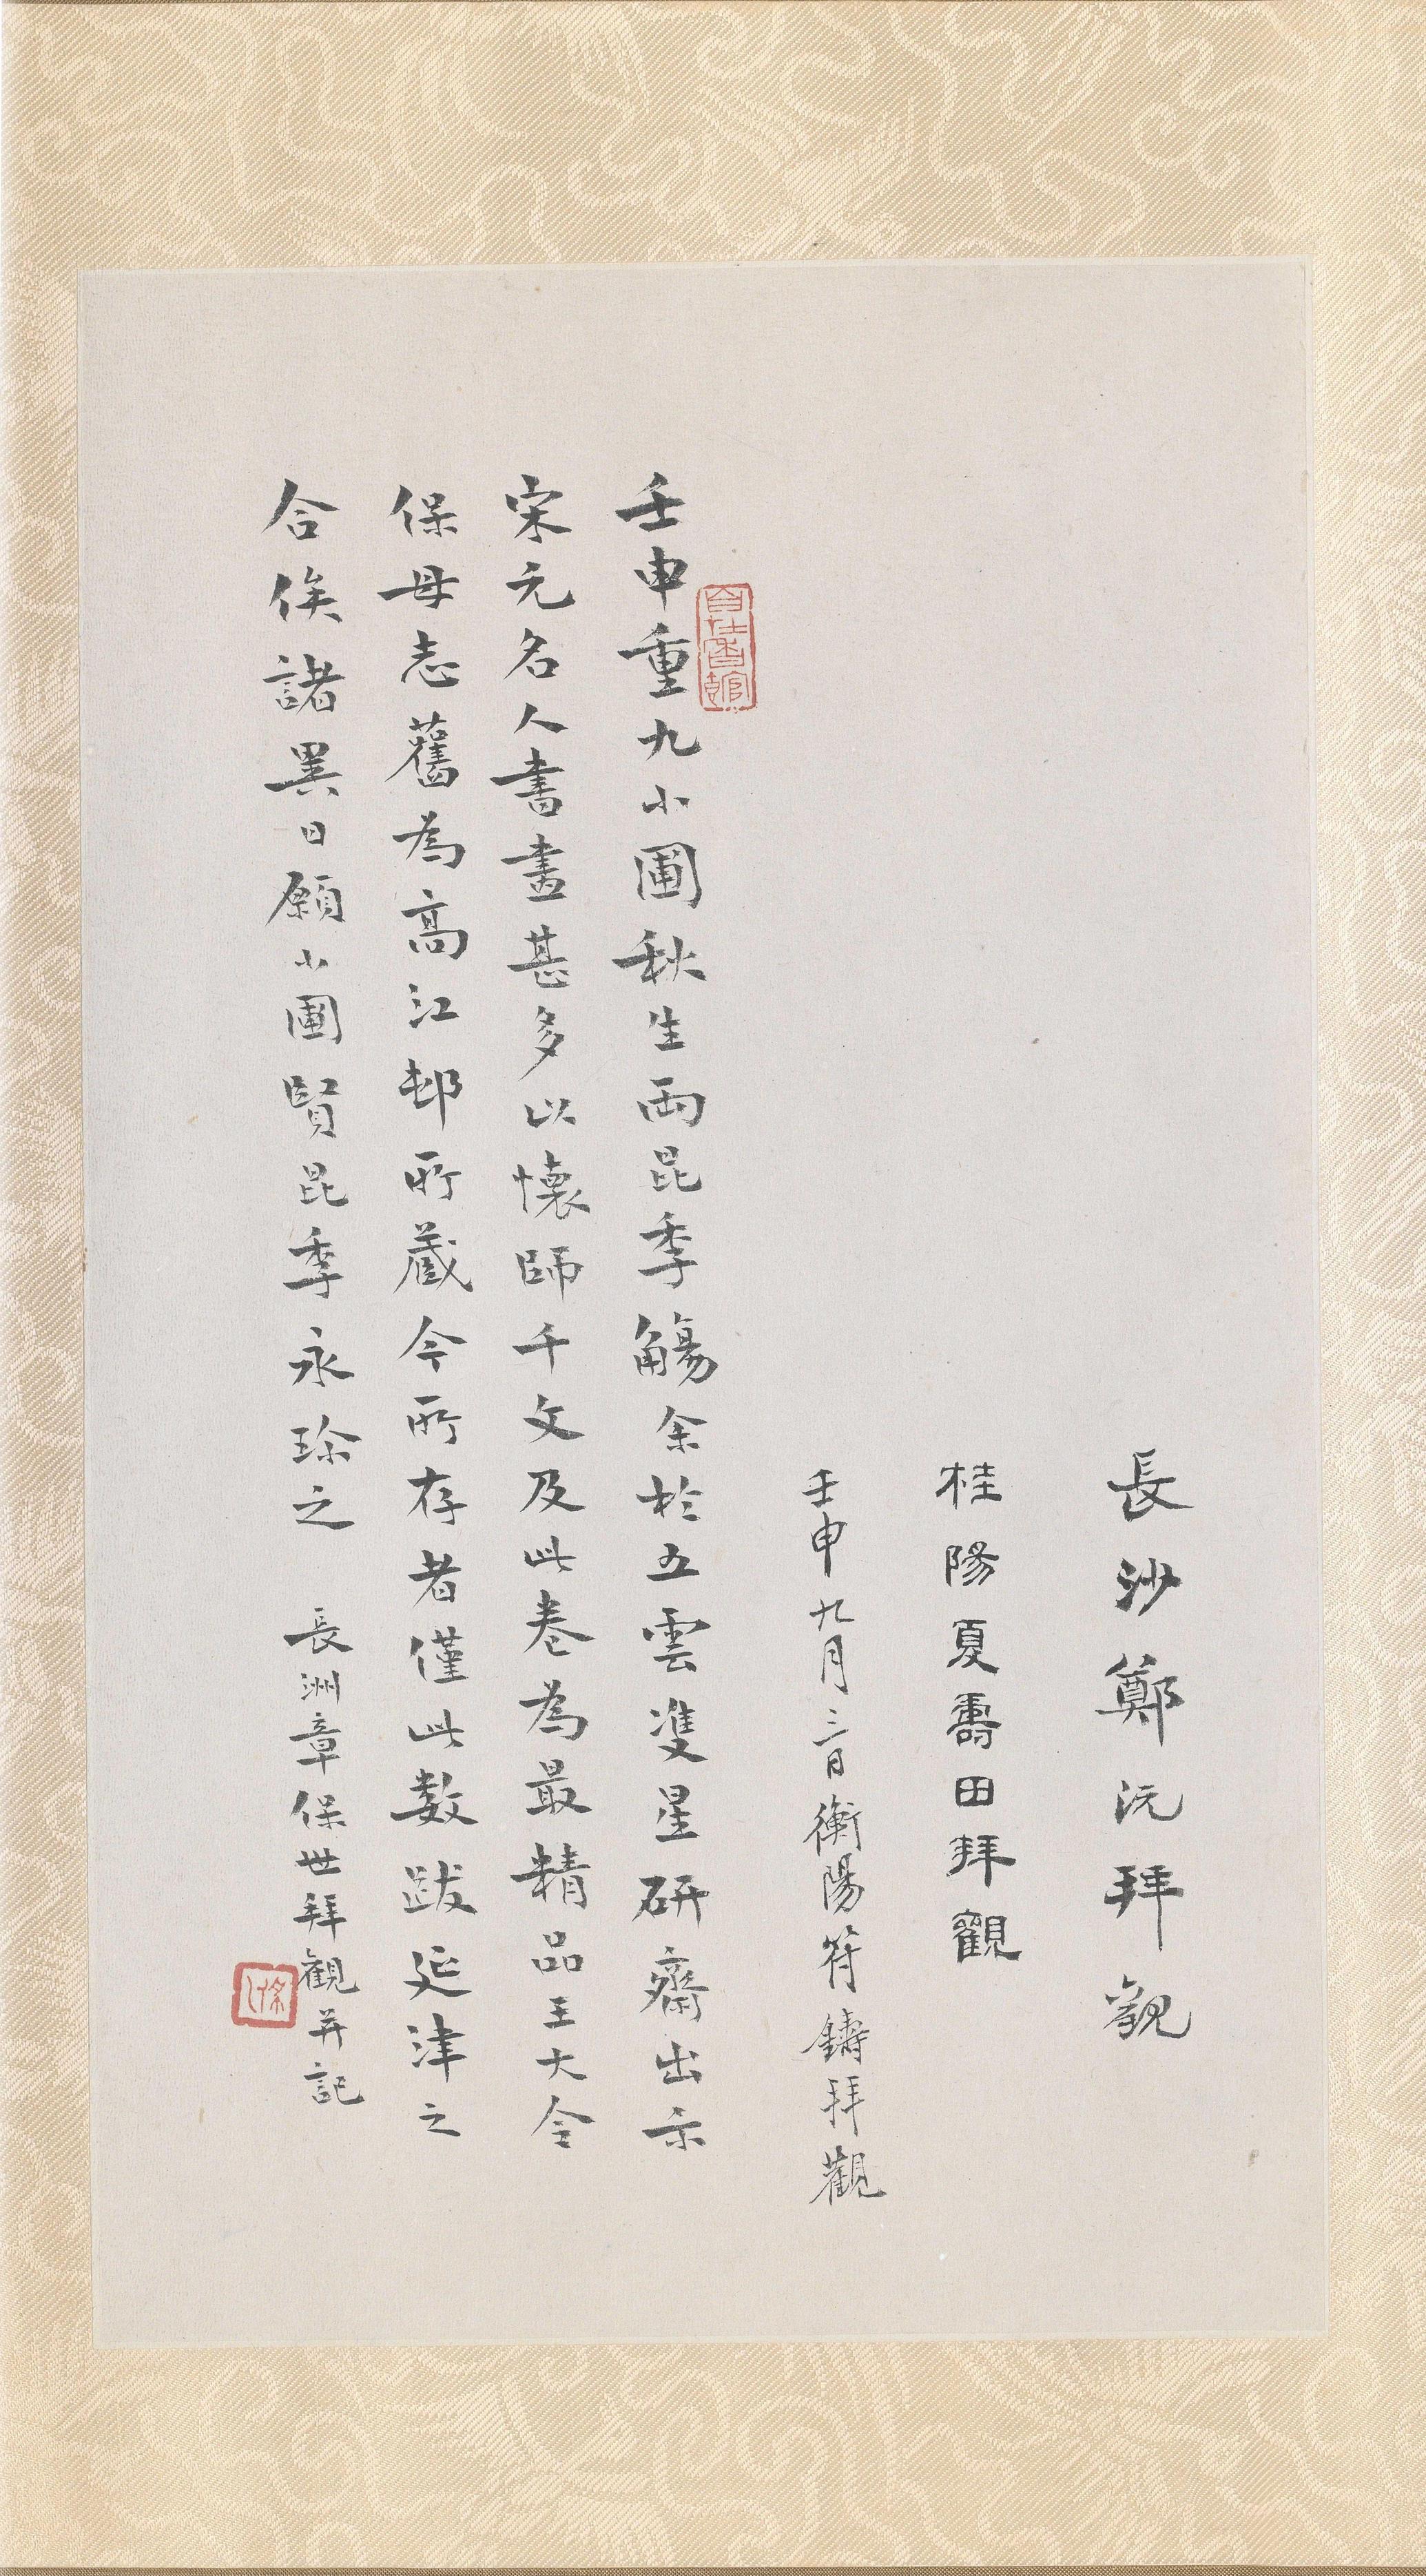 長沙鄭沅拜觀
桂陽夏壽田拜觀
壬申九月三日衡陽符鑄拜觀
壬申重九小圃秋生兩昆季觴余於五雲雙星研齋出示
宋元名人書畫甚多以懷師千文及此卷為最精品王大令
保母志舊為高江邨所藏今所存者僅此數跋延津之
合俟諸異日願小圃賢昆季永珍之 長洲章保世拜觀并記